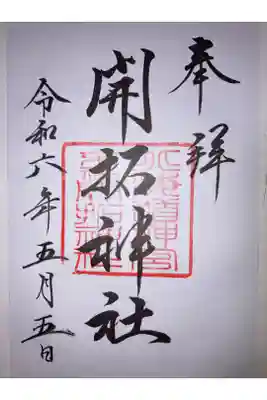 奉拝
開拓神社
令和六年五月五日